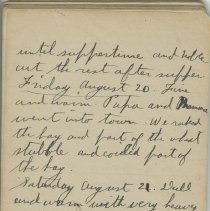 until suppertime and
cut the rest after supper.
Friday August 20. Fine
and warm Papa and Mamma
went into town. We raked
the hay and part of the wheat
stubble and coiled part of
the hay.
Saturday August 21. Dull
and warm with very heavy